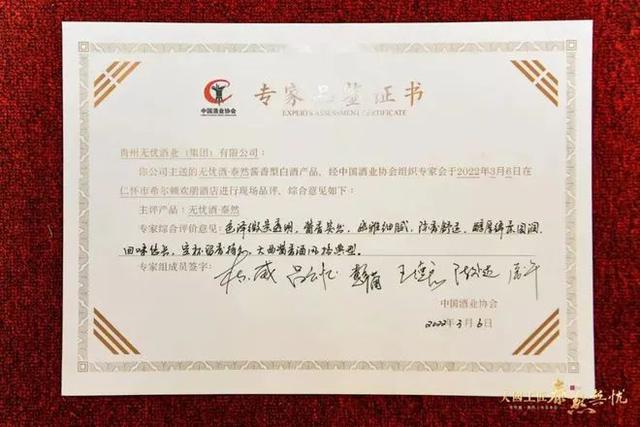 中国酒业协会
专家品鉴证书
EXPERTS ASSESSMENT CERTIFICATE
贵州无忧酒业（集团）有限公司：
你公司主送的无忧酒·泰然酱香型白酒产品，经中国酒业协会组织专家会于2022年3月6日在
仁怀市希尔顿欢朋酒店进行现场品评，综合意见如下：
主评产品：无忧酒·泰然
专家综合评价意见：色泽微黄透明，酱香突出，幽雅细腻，陈香舒适，醇厚绵柔圆润，
回味悠长，空杯留香持久，大曲酱香酒风格典型。
专家组成员签字：
中国酒业协会
2022年3月6日
大国上匠 泰然无忧